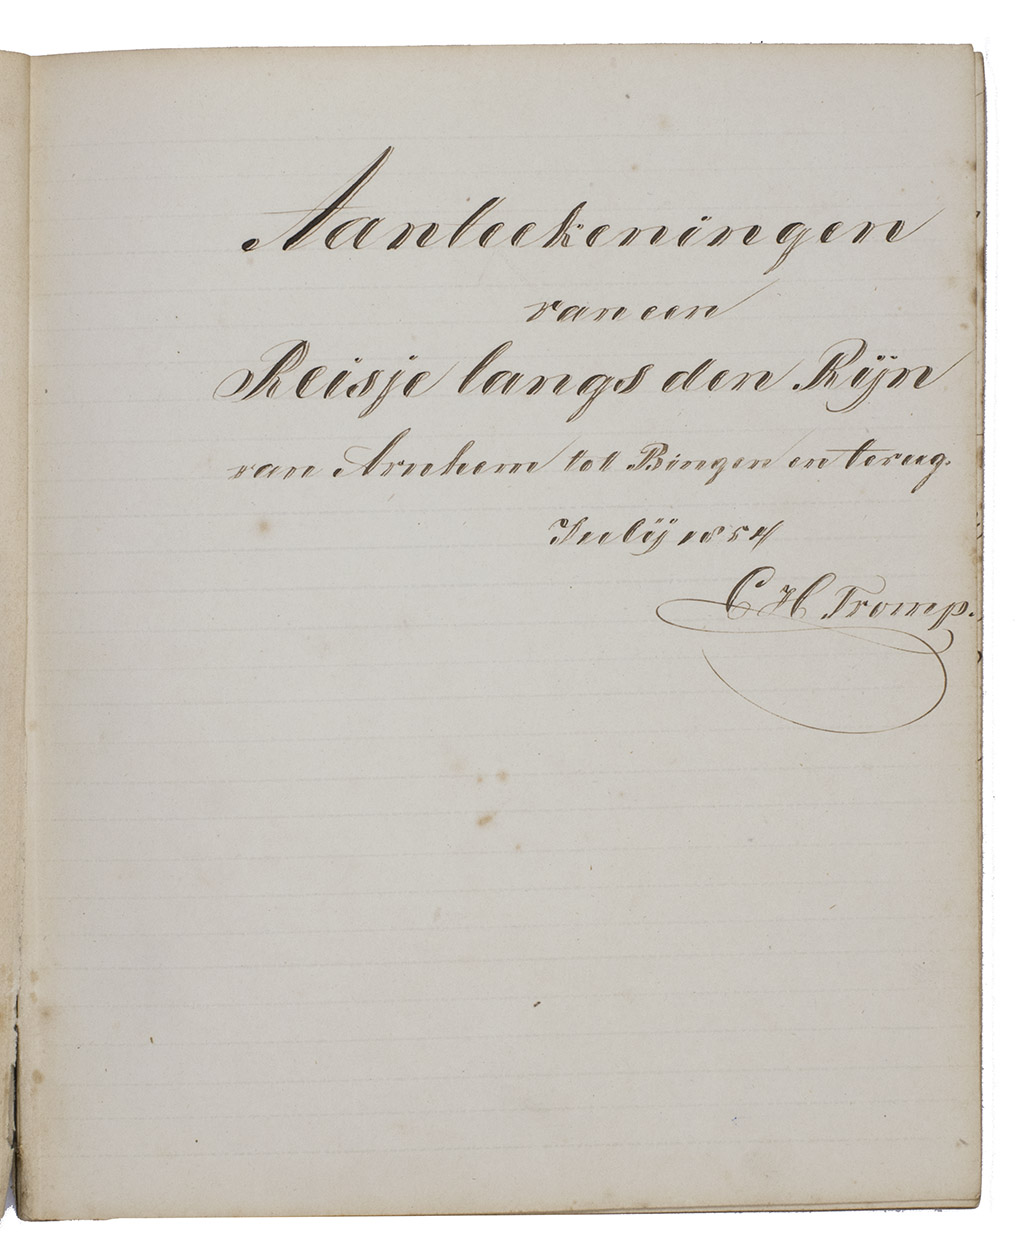 Aanteekeningen
van een
Reisje langs den Rijn
van Arnhem tot Bingen en terug.
Julij 1854
C H Tromp.